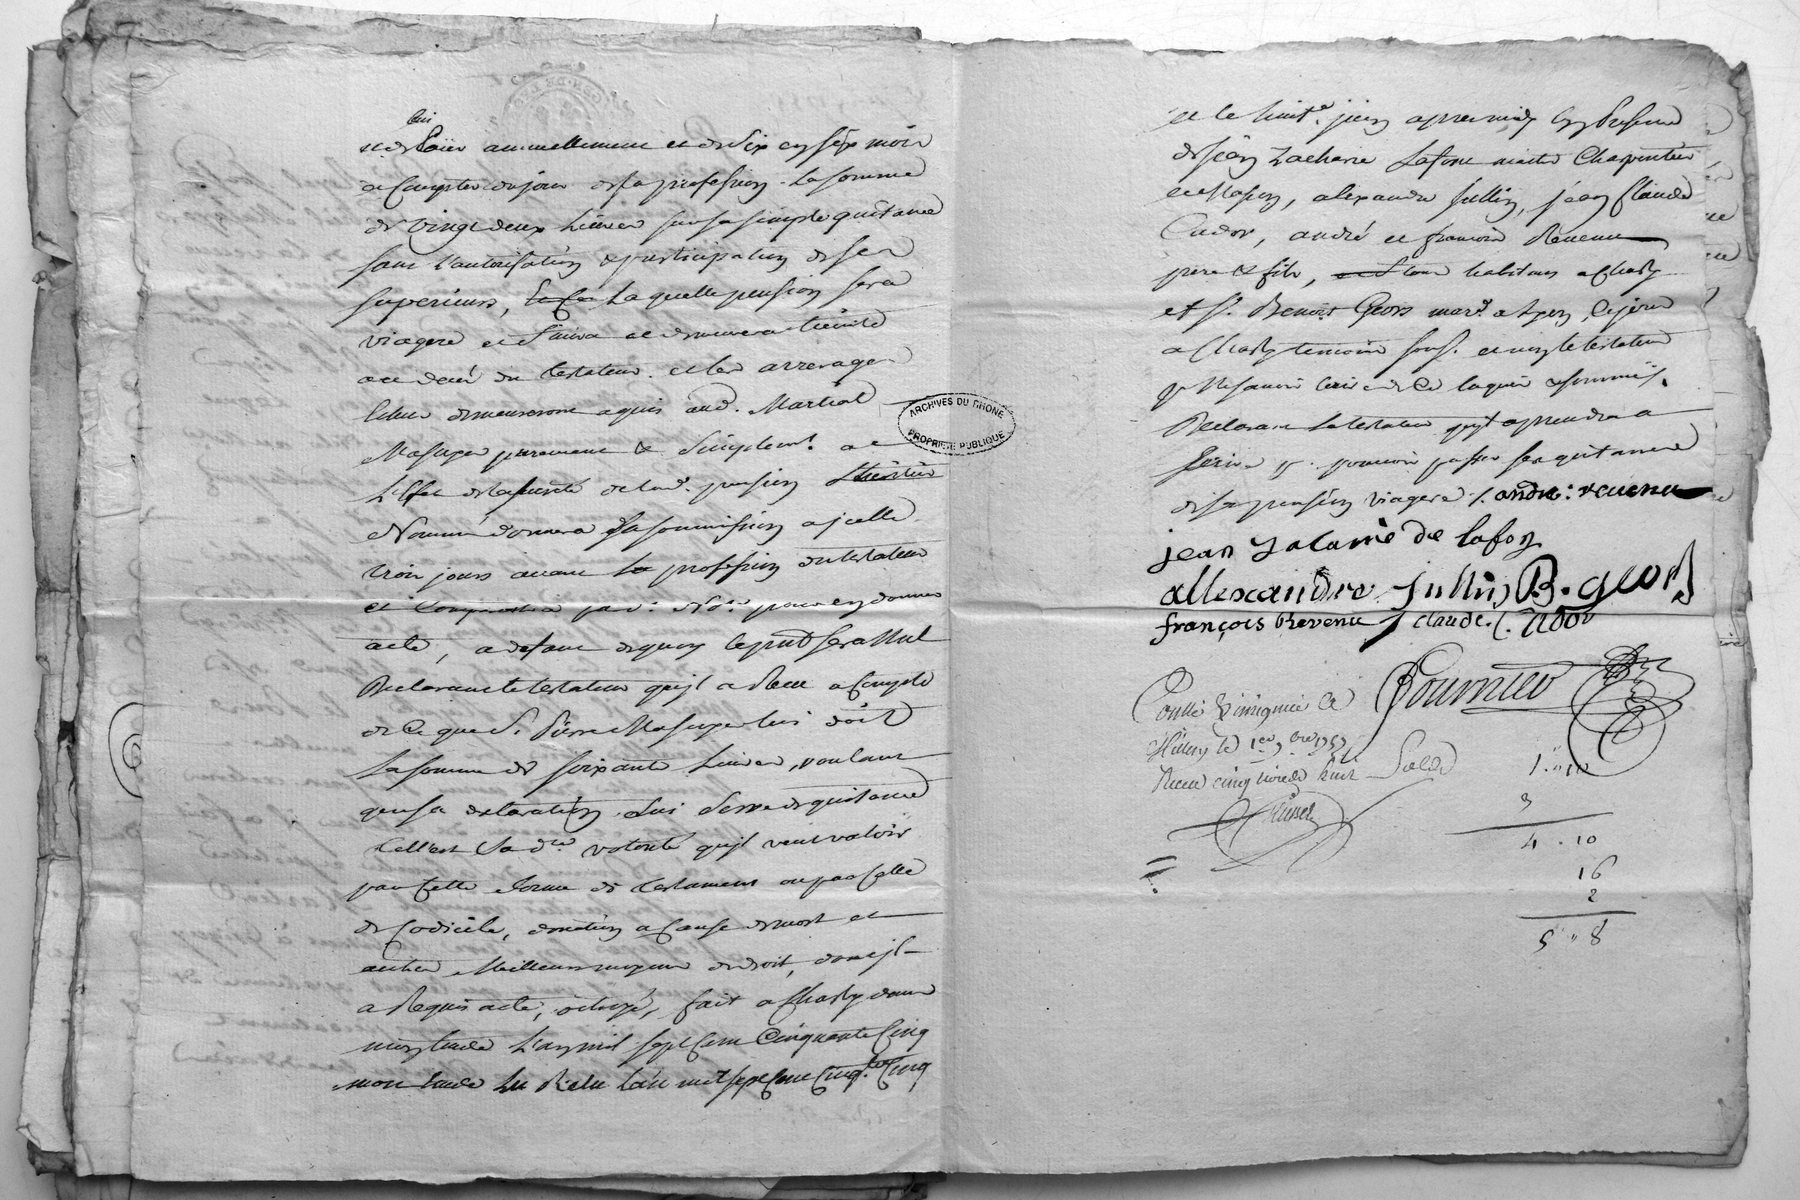 lui
et de Païer annuellement et de Six en Six mois
a Compter du jour de sa profession La somme
de vingt deux Livres sur sa simple quittance
sans L'autorisation & participation de ses
superieurs, Laquelle pension sera
viagere et finira et demeurera Eteinte
au decés du testateur. et les arrerages
Echus demeureront aquis aud. Martial
Masuyer purement & Simplem.t a
L'Effet de la sureté de lad. pension L'heritier
Nommé donnera sa soumission a jcelle
trois jours avant la profession du testateur
et Comparoitra par d. No.re pour en donner
acte, a defaut de quoy le pnt sera Nul
Declarant le testateur qu'jl a Receu a Compte
de Ce que S. Pierre Masuyer lui doit
La somme de soixante Livres, voulant
que sa declaration Lui serve de quittance
telle est Sa d.re volonté qu'jl veut valoir
par Cette forme de testament ou par Celle
de Codicile, donation a Cause de mort et
autres Meilleurs moyens de droit, dont jl
a Requis acte, octroyé, fait a Charly dans
mon Etude L'an mil sept Cent Cinquante Cinq
mon Etude
et le huit.e juin apres midy En presence
de jean Zacharie Lafont maitre Charpentier
et Masson, alexandre jullin, jean Claude
Cador, andré et francois Revenu
pere & fils, tous habitans a Charly
et S.r Benoit Geors mar.d a Lyon, Ce jour
a Charly temoins sous. et non le testateur
p.r Ne savoir Ecrire de Ce Enquis & sommé,
Declarant Le testateur qu'jl aprendra a
Ecrire p.r pouvoir passer ses quittances
de sa pension viagere /. andre: revenu
jean zacarie de lafon
allexandre jullin B. geors
françois Revenu j claude. C. Cador
Fournier
Controllé
1 .. 10
3
4 . 10
16
2
5 " 8
ARCHIVES DU RHONE
PROPRIETE PUBLIQUE